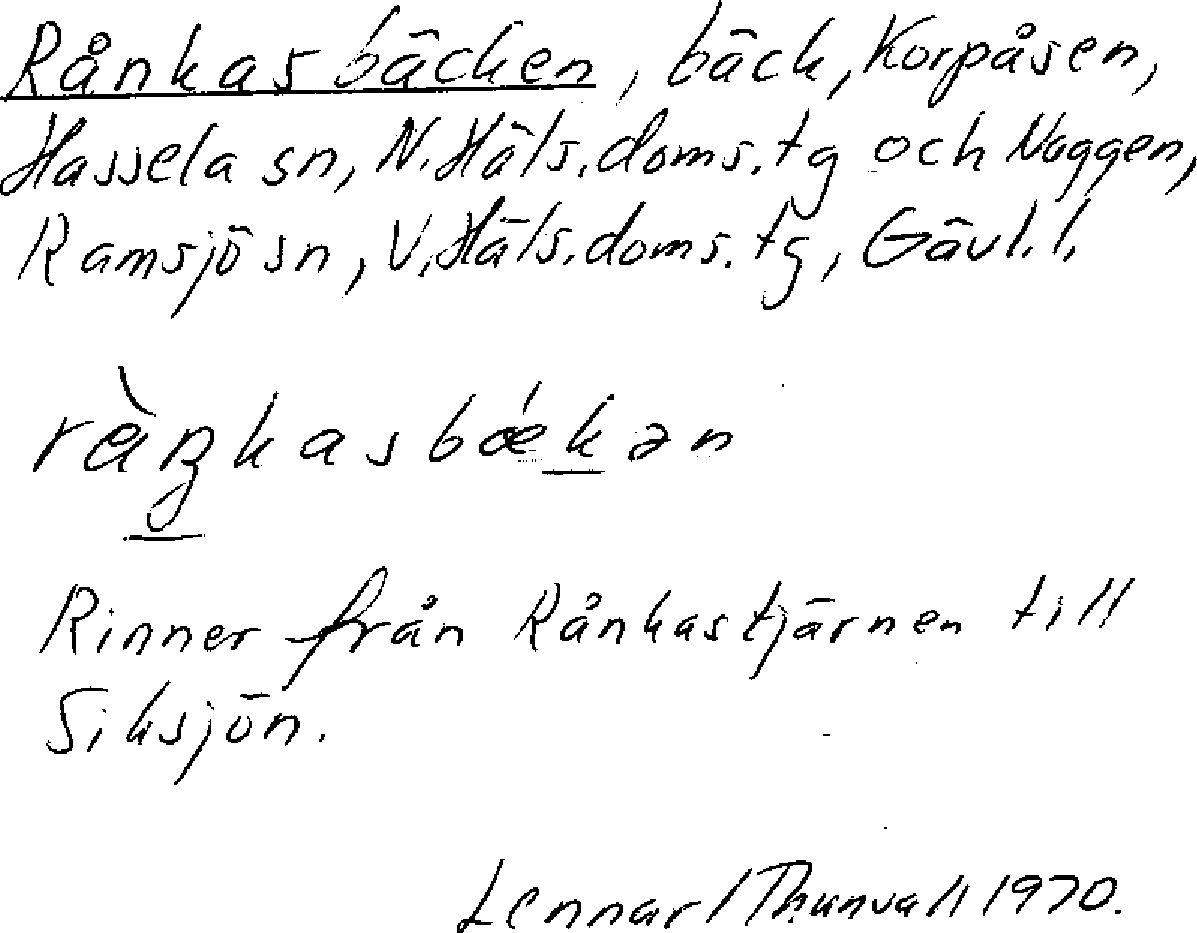 Rånkasbäcken, bäck, Korpåsen,
Hassela sn, N. Häls. doms. tg och Naggen,
Ramsjö sn, V. Häls. doms. tg, Gävl. l.
Rinner från Rånkastjärnen till
Siksjön.
Lennart Thunvall 1970.